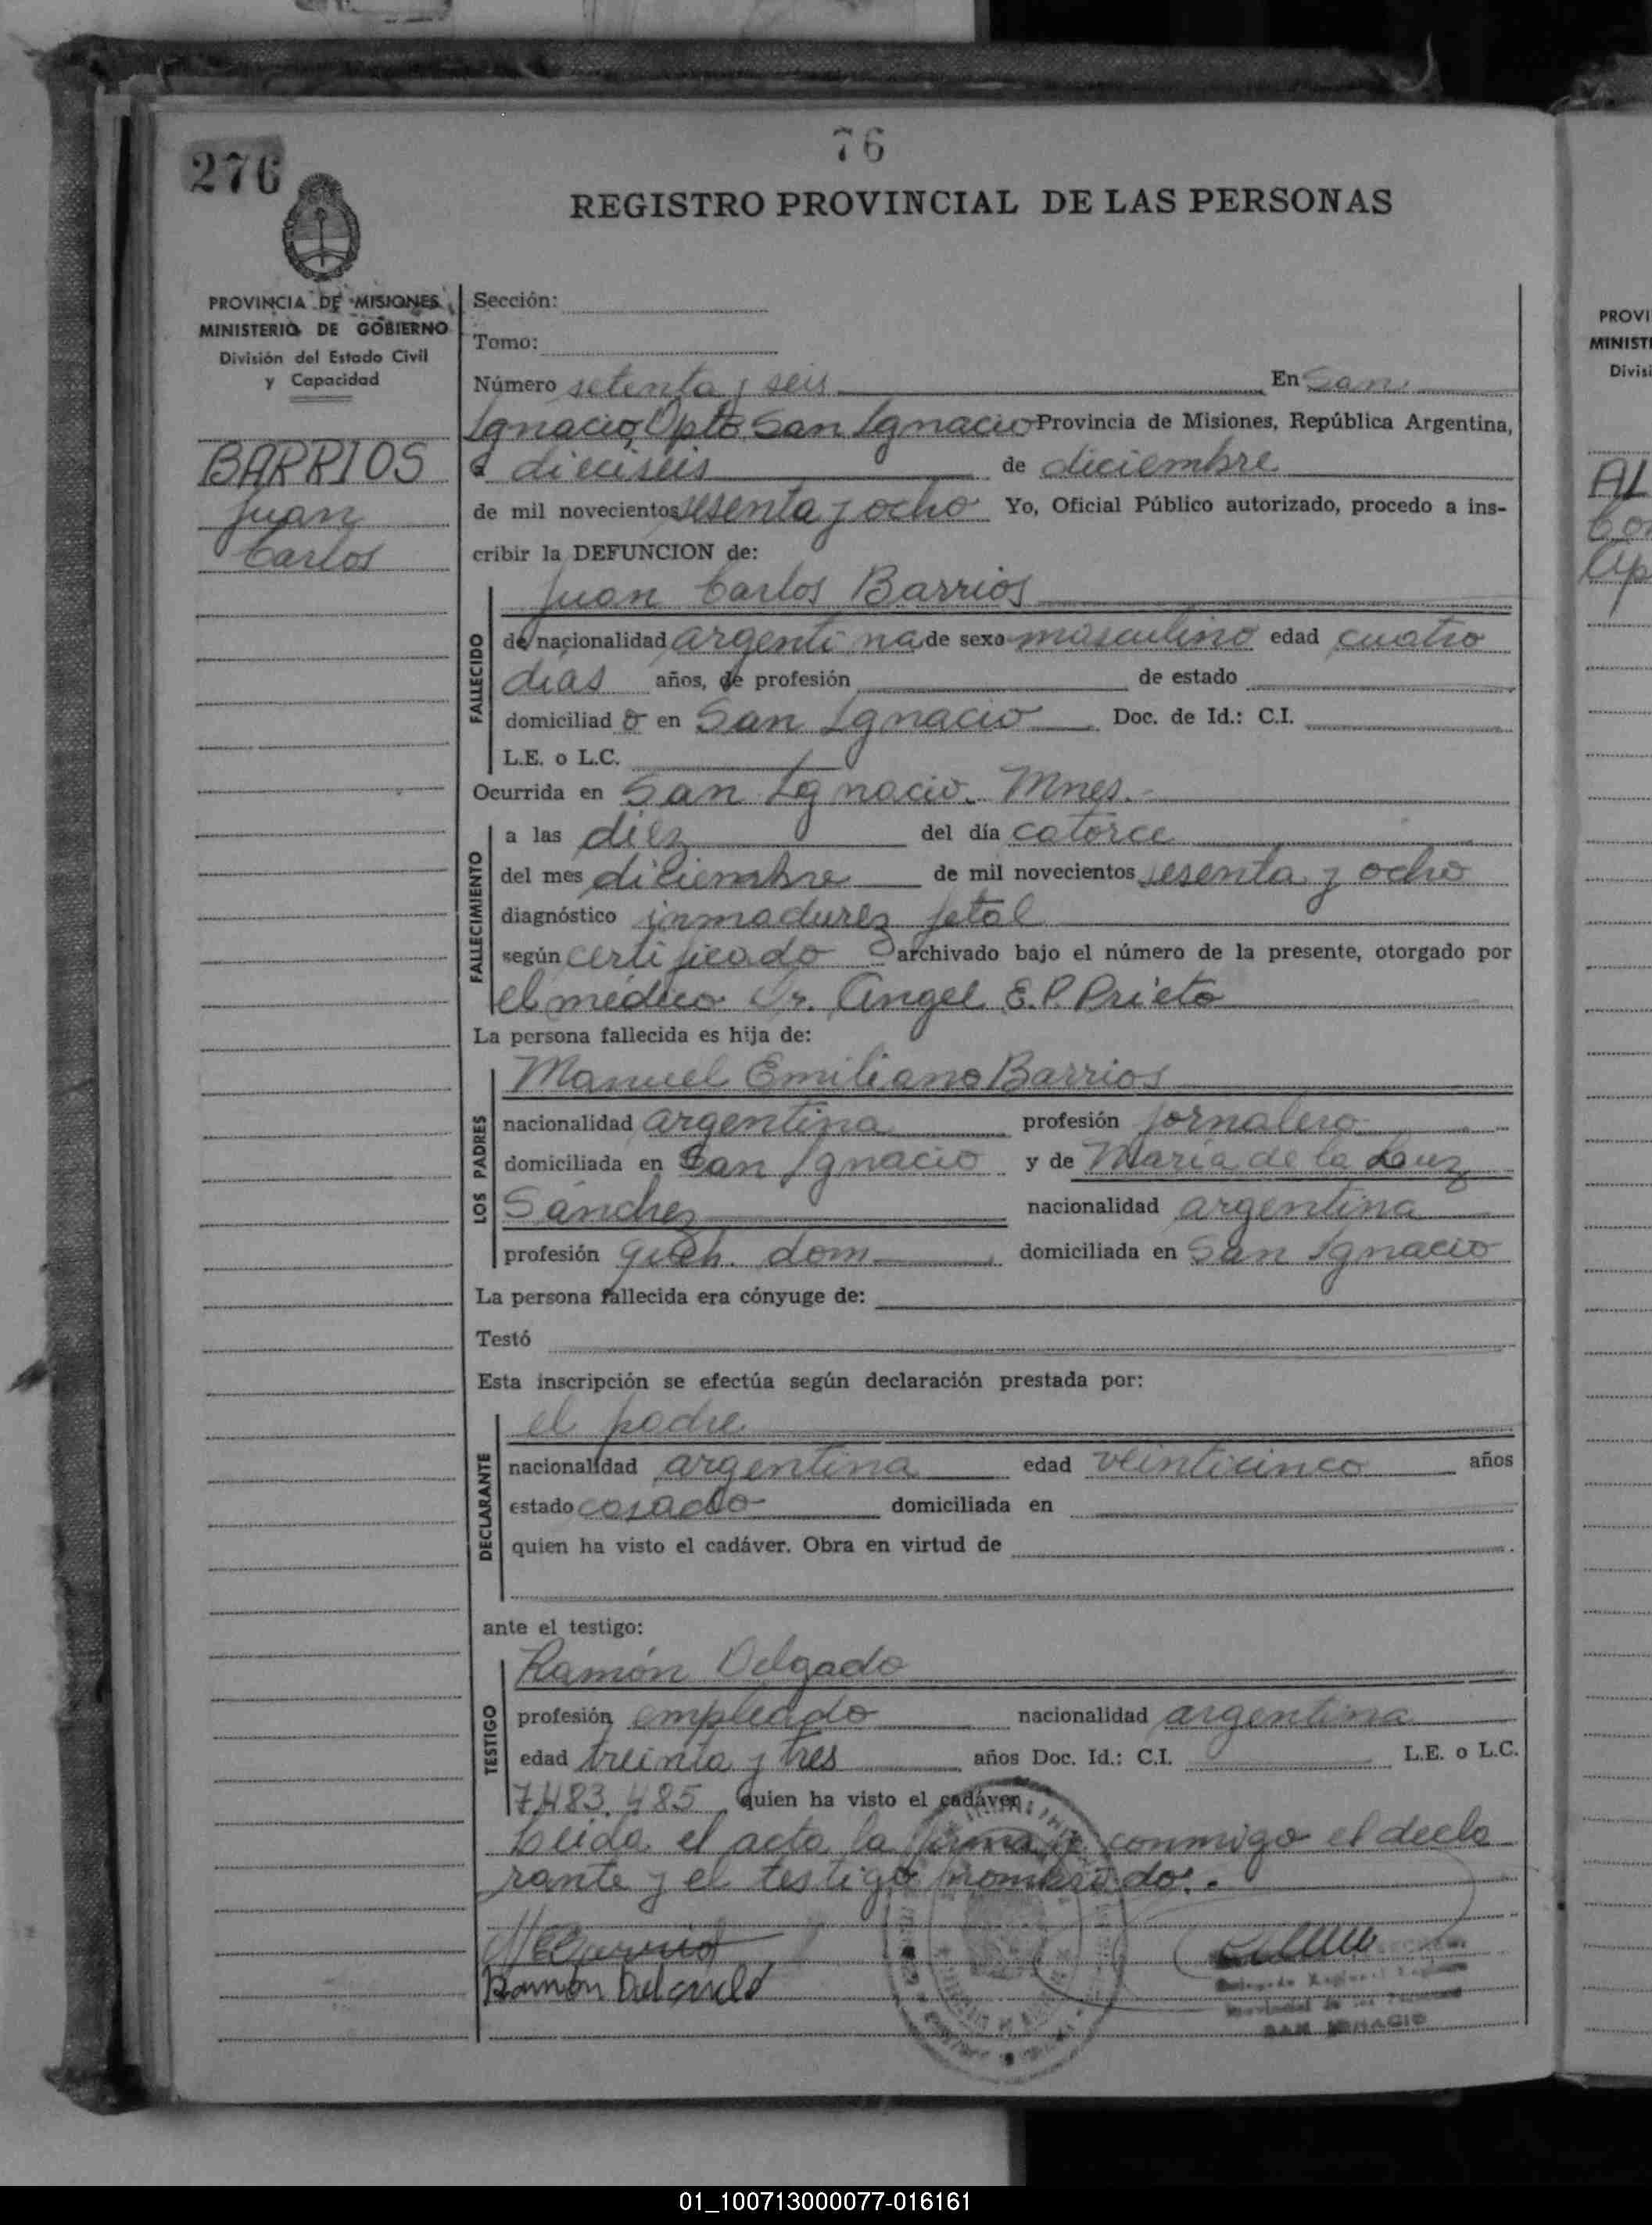 76
276
REGISTRO PROVINCIAL DE LAS PERSONAS
PROVINCIA DE MISIONES
MINISTERIO DE GOBIERNO
División del Estado Civil
y Capacidad
BARRIOS
Juan
Carlos
Sección:
Tomo:
Número setenta y seis En San
Ignacio, Dpto San Ignacio Provincia de Misiones, República Argentina,
a dieciseis de diciembre
de mil novecientos sesenta y ocho Yo, Oficial Público autorizado, procedo a ins-
cribir la DEFUNCION de:
Juan Carlos Barrios
FALLECIDO
de nacionalidad argentina de sexo masculino edad cuatro
días años, de profesión de estado
domiciliad o en San Ignacio Doc. de Id.: C.I.
L.E. o L.C.
Ocurrida en San Ignacio. Mnes.
FALLECIMIENTO
a las diez del día catorce
del mes diciembre de mil novecientos sesenta y ocho
diagnóstico inmadurez fetal
según certificado archivado bajo el número de la presente, otorgado por
el médico Dr. Angel E.P. Prieto
La persona fallecida es hija de:
LOS PADRES
Manuel Emiliano Barrios
nacionalidad argentina profesión jornalero
domiciliada en San Ignacio y de María de la Luz
Sánchez nacionalidad argentina
profesión queh. dom domiciliada en San Ignacio
La persona fallecida era cónyuge de:
Testó
Esta inscripción se efectúa según declaración prestada por:
DECLARANTE
el padre
nacionalidad argentina edad veinticinco años
estado casado domiciliada en
quien ha visto el cadáver. Obra en virtud de
ante el testigo:
TESTIGO
Ramón Delgado
profesión empleado nacionalidad argentina
edad treinta y tres años Doc. Id.: C.I. L.E. o L.C.
7.483.485 quien ha visto el cadáver
Leida el acta la firma conmigo el decla
rante y el testigo nombrado.
Ramón Delgado
SAN IGNACIO
PROVI
MINIST
Divisi
AL
01_100713000077-016161